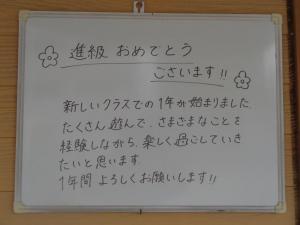 進級 おめでとう
ございます!!
新しいクラスでの1年が始まりました
たくさん遊んで、さまざまなことを
経験しながら、楽しく過ごしていき
たいと思います
1年間 よろしくお願いします!!